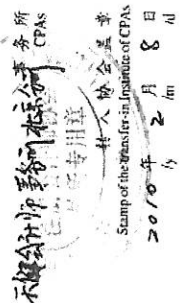 天健会计师事务所北京分所
事务所
CPAs
专用章
转入协会盖章
Stamp of the transfer-in Institute of CPAs
2010年2月8日
/y /m /d